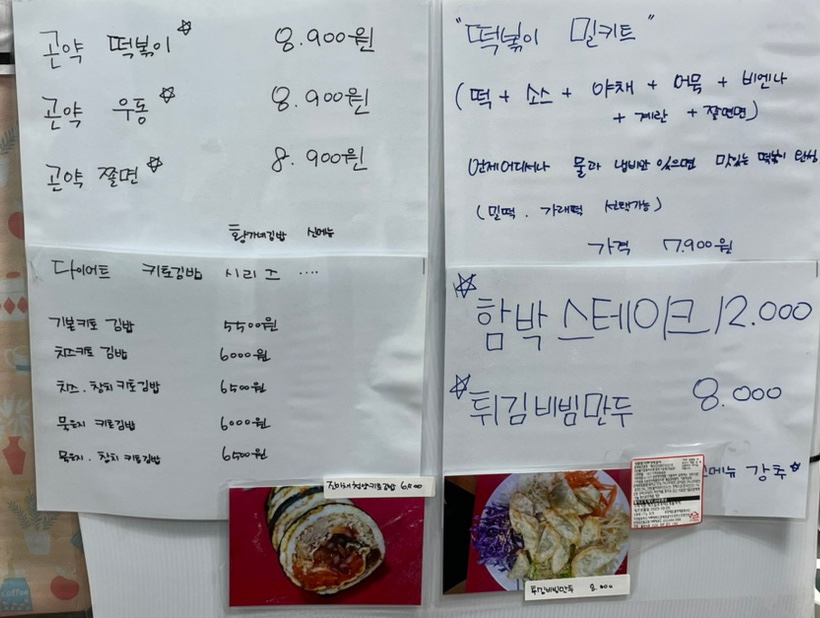 곤약 떡볶이☆ 8.900원
곤약 우동☆ 8.900원
곤약 쫄면☆ 8.900원
황가네김밥 신메뉴
다이어트 키토김밥 시리즈 ····
기본키토 김밥 5500원
치즈키토 김밥 6000원
치즈.참치 키토김밥 6500원
묵은지 키토김밥 6000원
묵은지.참치 키토김밥 6500원
키토김밥 6,500
"떡볶이 밀키트"
(떡 + 소스 + 야채 + 어묵 + 비엔나
+ 계란 + 쫄면)
언제어디서나 물과 냄비만 있으면 맛있는 떡볶이 완성
(밀떡. 가래떡 선택가능)
가격 7.900원
☆함박 스테이크 12.000
☆튀김비빔만두 8.000
신메뉴 강추☆
튀김비빔만두 8.000
coffee